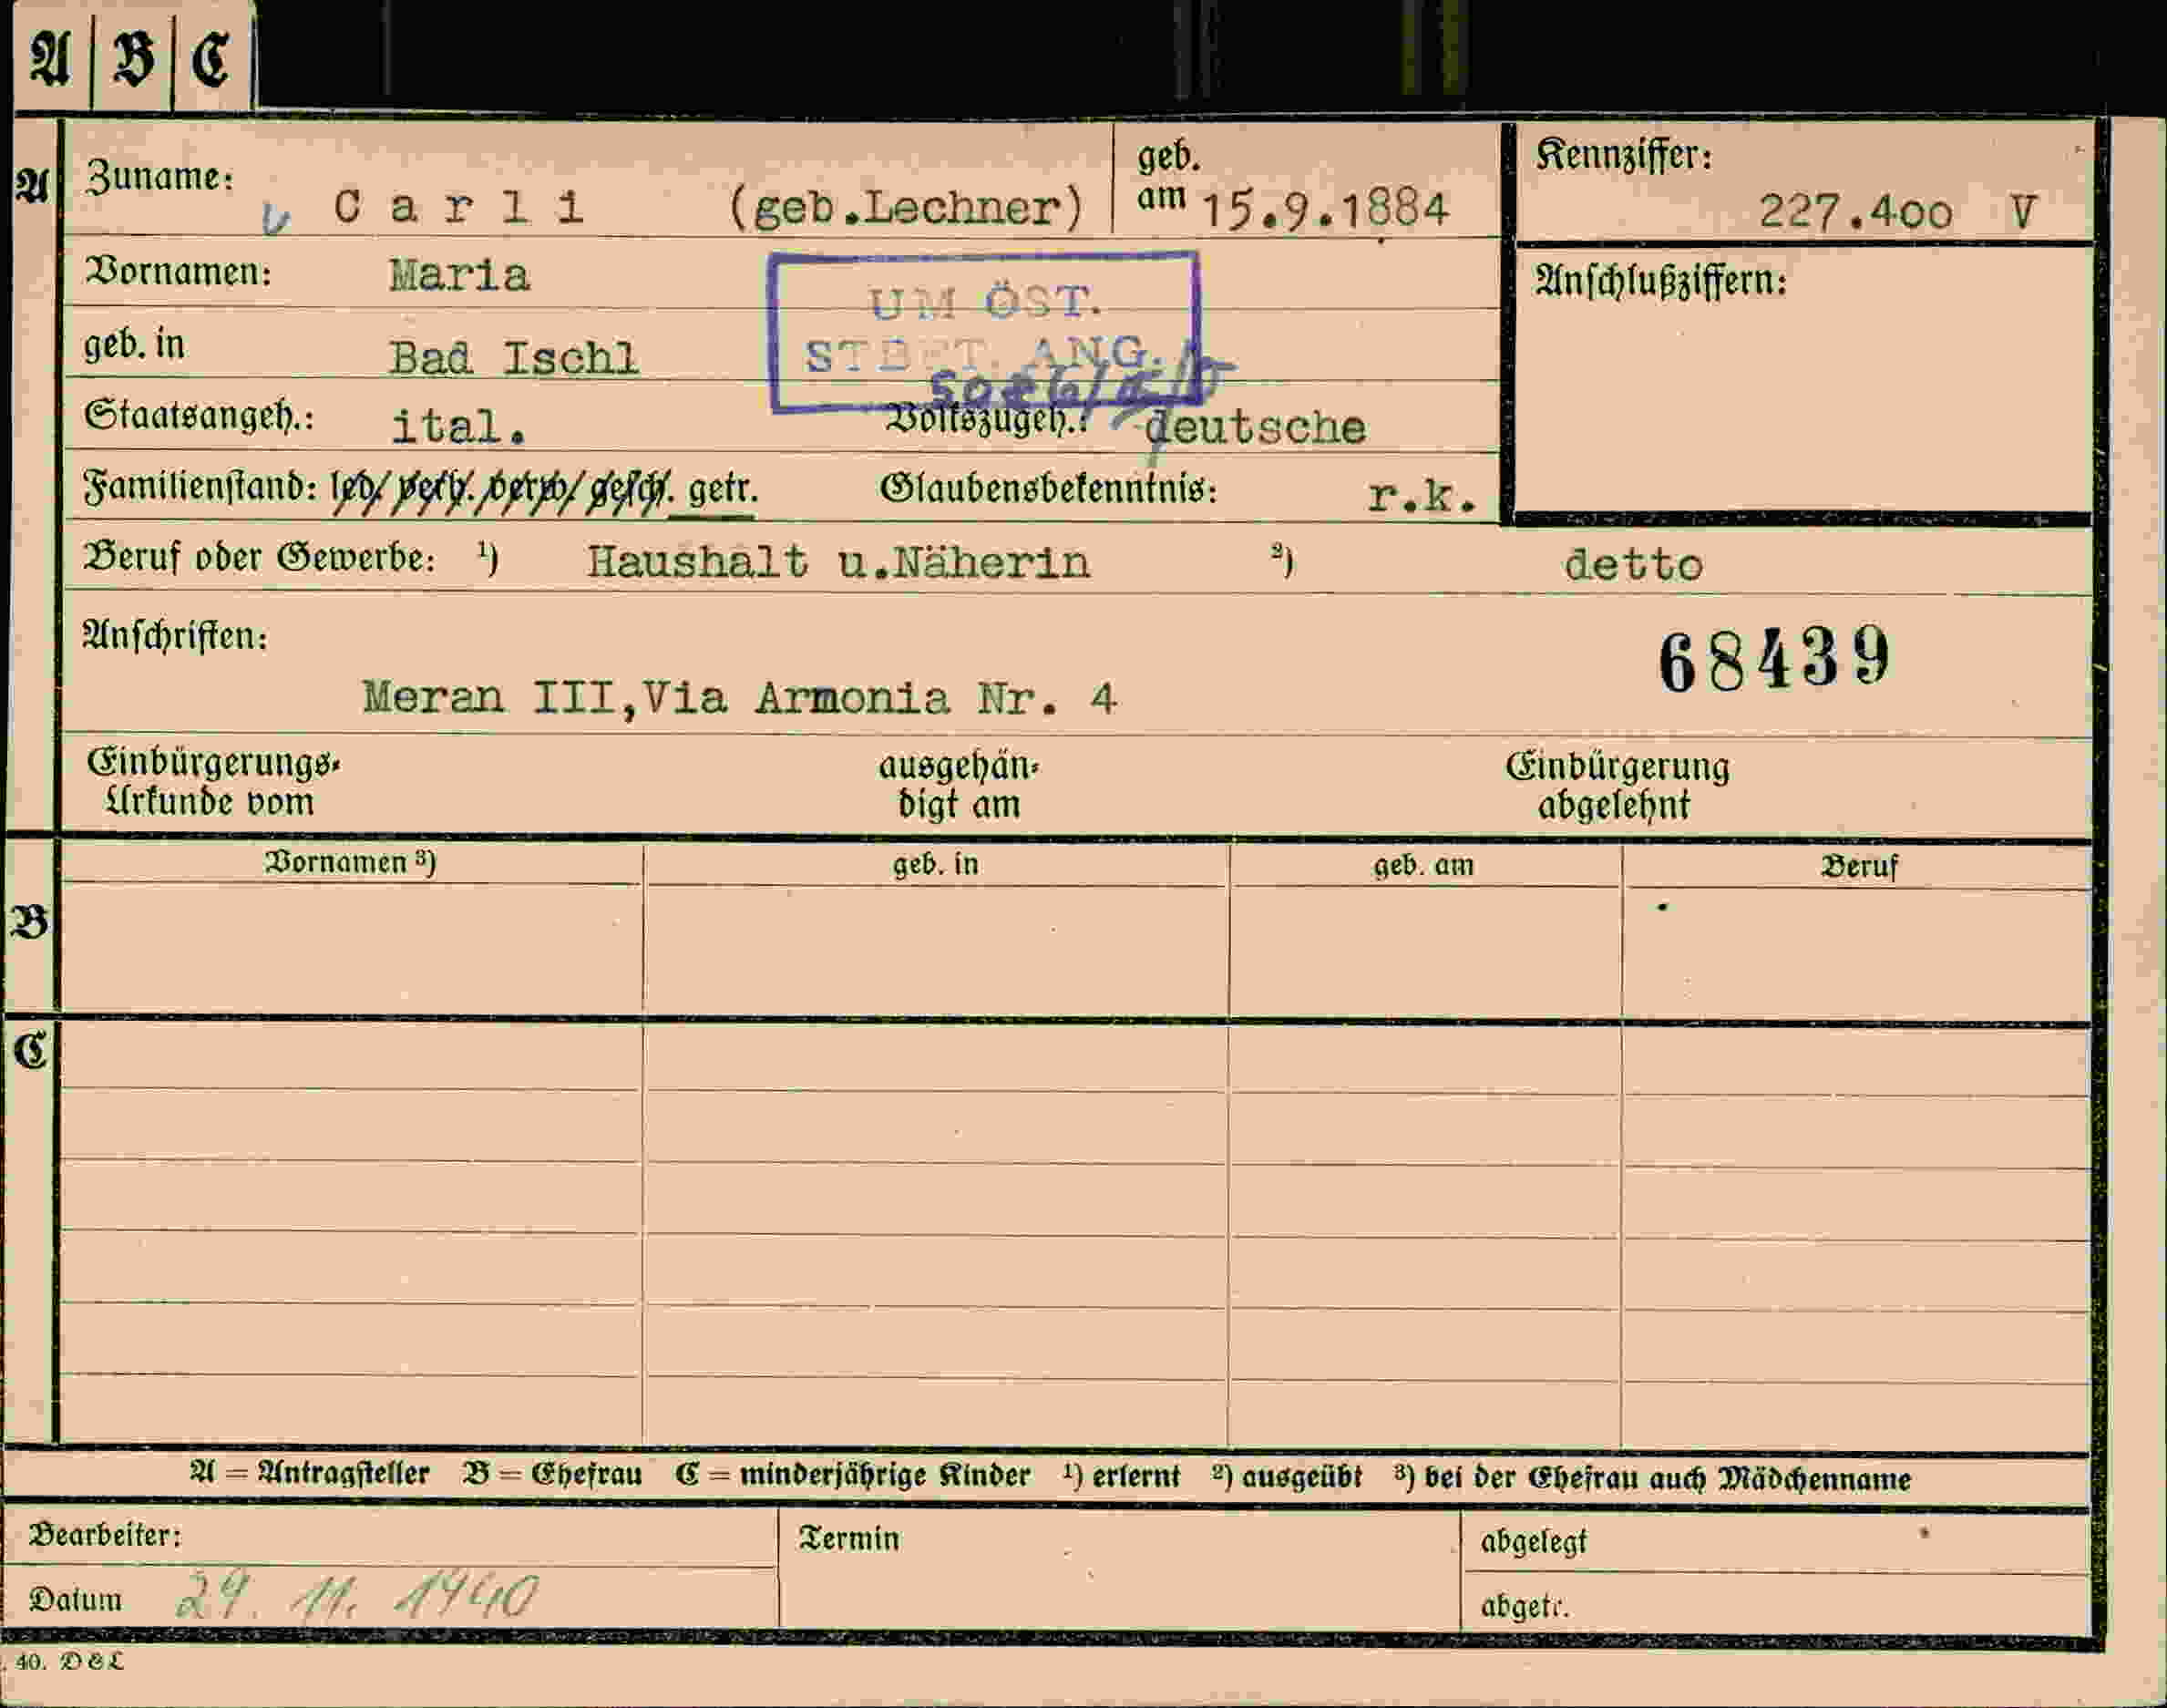 A | B | C
A Zuname: C a r l i (geb.Lechner) geb. am 15.9.1884 Kennziffer: 227.400 V
Vornamen: Maria Anschlußziffern:
UM ÖST.
geb. in Bad Ischl
STBFT. ANG.
Staatsangeh.: ital. Volkszugeh.: deutsche
Familienstand: led/ verh. verw/ gesch. getr. Glaubensbekenntnis: r.k.
Beruf oder Gewerbe: ¹) Haushalt u.Näherin ²) detto
Anschriften: 68439
Meran III,Via Armonia Nr. 4
Einbürgerungs- ausgehän- Einbürgerung
Urkunde vom digt am abgelehnt
Vornamen ³) geb. in geb. am Beruf
B
C
A = Antragsteller B = Ehefrau C = minderjährige Kinder ¹) erlernt ²) ausgeübt ³) bei der Ehefrau auch Mädchenname
Bearbeiter: Termin abgelegt
Datum 29. 11. 1940 abgetr.
40. D&L